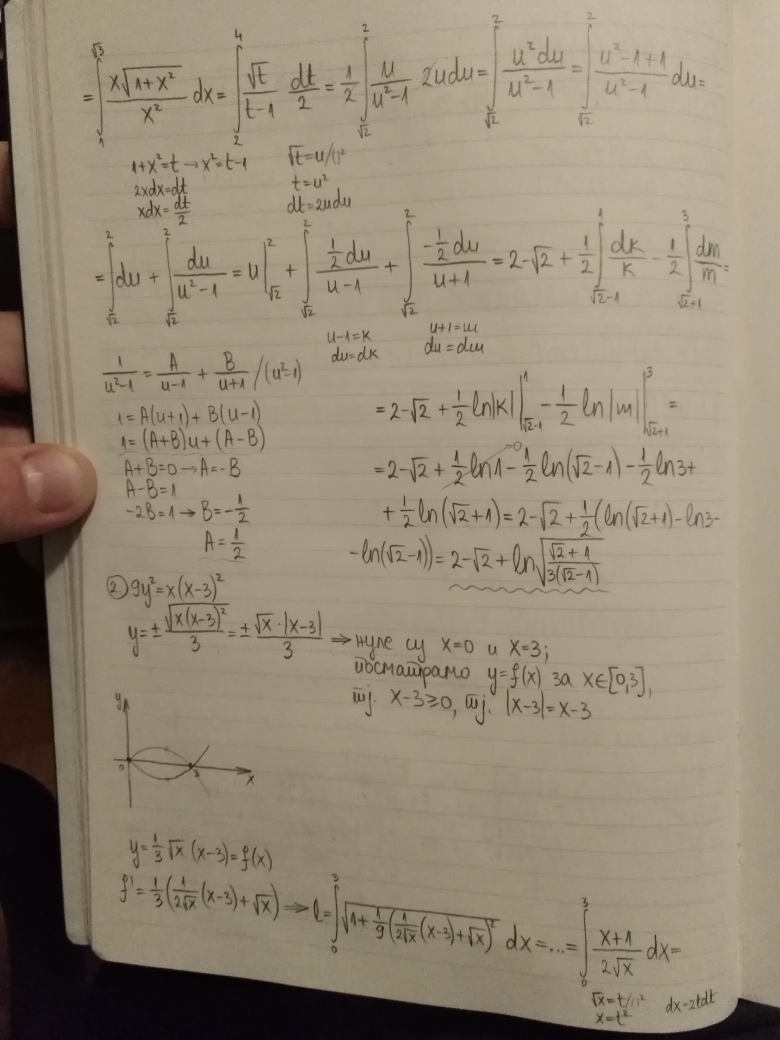 = ∫_1^{√3} x√(1+x²)/x² dx = ∫_2^4 √t/(t-1) dt/2 = 1/2 ∫_{√2}^2 u/(u²-1) 2udu = ∫_{√2}^2 u²du/(u²-1) = ∫_{√2}^2 (u²-1+1)/(u²-1) du =
1+x²=t → x²=t-1 √t=u/()²
2xdx=dt t=u²
xdx=dt/2 dt=2udu
= ∫_{√2}^2 du + ∫_{√2}^2 du/(u²-1) = u|_{√2}^2 + ∫_{√2}^2 (1/2 du)/(u-1) + ∫_{√2}^2 (-1/2 du)/(u+1) = 2-√2 + 1/2 ∫_{√2-1}^1 dk/k - 1/2 ∫_{√2+1}^3 dm/m =
u-1=k u+1=m
du=dk du=dm
1/(u²-1) = A/(u-1) + B/(u+1) /(u²-1)
1=A(u+1)+B(u-1) = 2-√2 + 1/2 ln|k| |_{√2-1}^1 - 1/2 ln|m| |_{√2+1}^3 =
1=(A+B)u+(A-B)
A+B=0 → A=-B = 2-√2 + 1/2 ln1 →0 - 1/2 ln(√2-1) - 1/2 ln3 +
A-B=1
-2B=1 → B=-1/2 + 1/2 ln(√2+1) = 2-√2 + 1/2 (ln(√2+1) - ln3 -
A=1/2 - ln(√2-1)) = 2-√2 + ln√((√2+1)/(3(√2-1)))
② 9y²=x(x-3)²
y=± √(x(x-3)²)/3 = ± √x·|x-3|/3 ⇒ нуле су x=0 и x=3;
посматрамо y=f(x) за x∈[0,3],
тј. x-3≥0, тј. |x-3|=x-3
y
0 3 x
y=1/3 √x (x-3)=f(x)
f'=1/3 (1/(2√x) (x-3)+√x) ⇒ l=∫_0^3 √(1+1/9 (1/(2√x) (x-3)+√x)²) dx = ... = ∫_0^3 (x+1)/(2√x) dx =
√x=t/()² dx=2tdt
x=t²